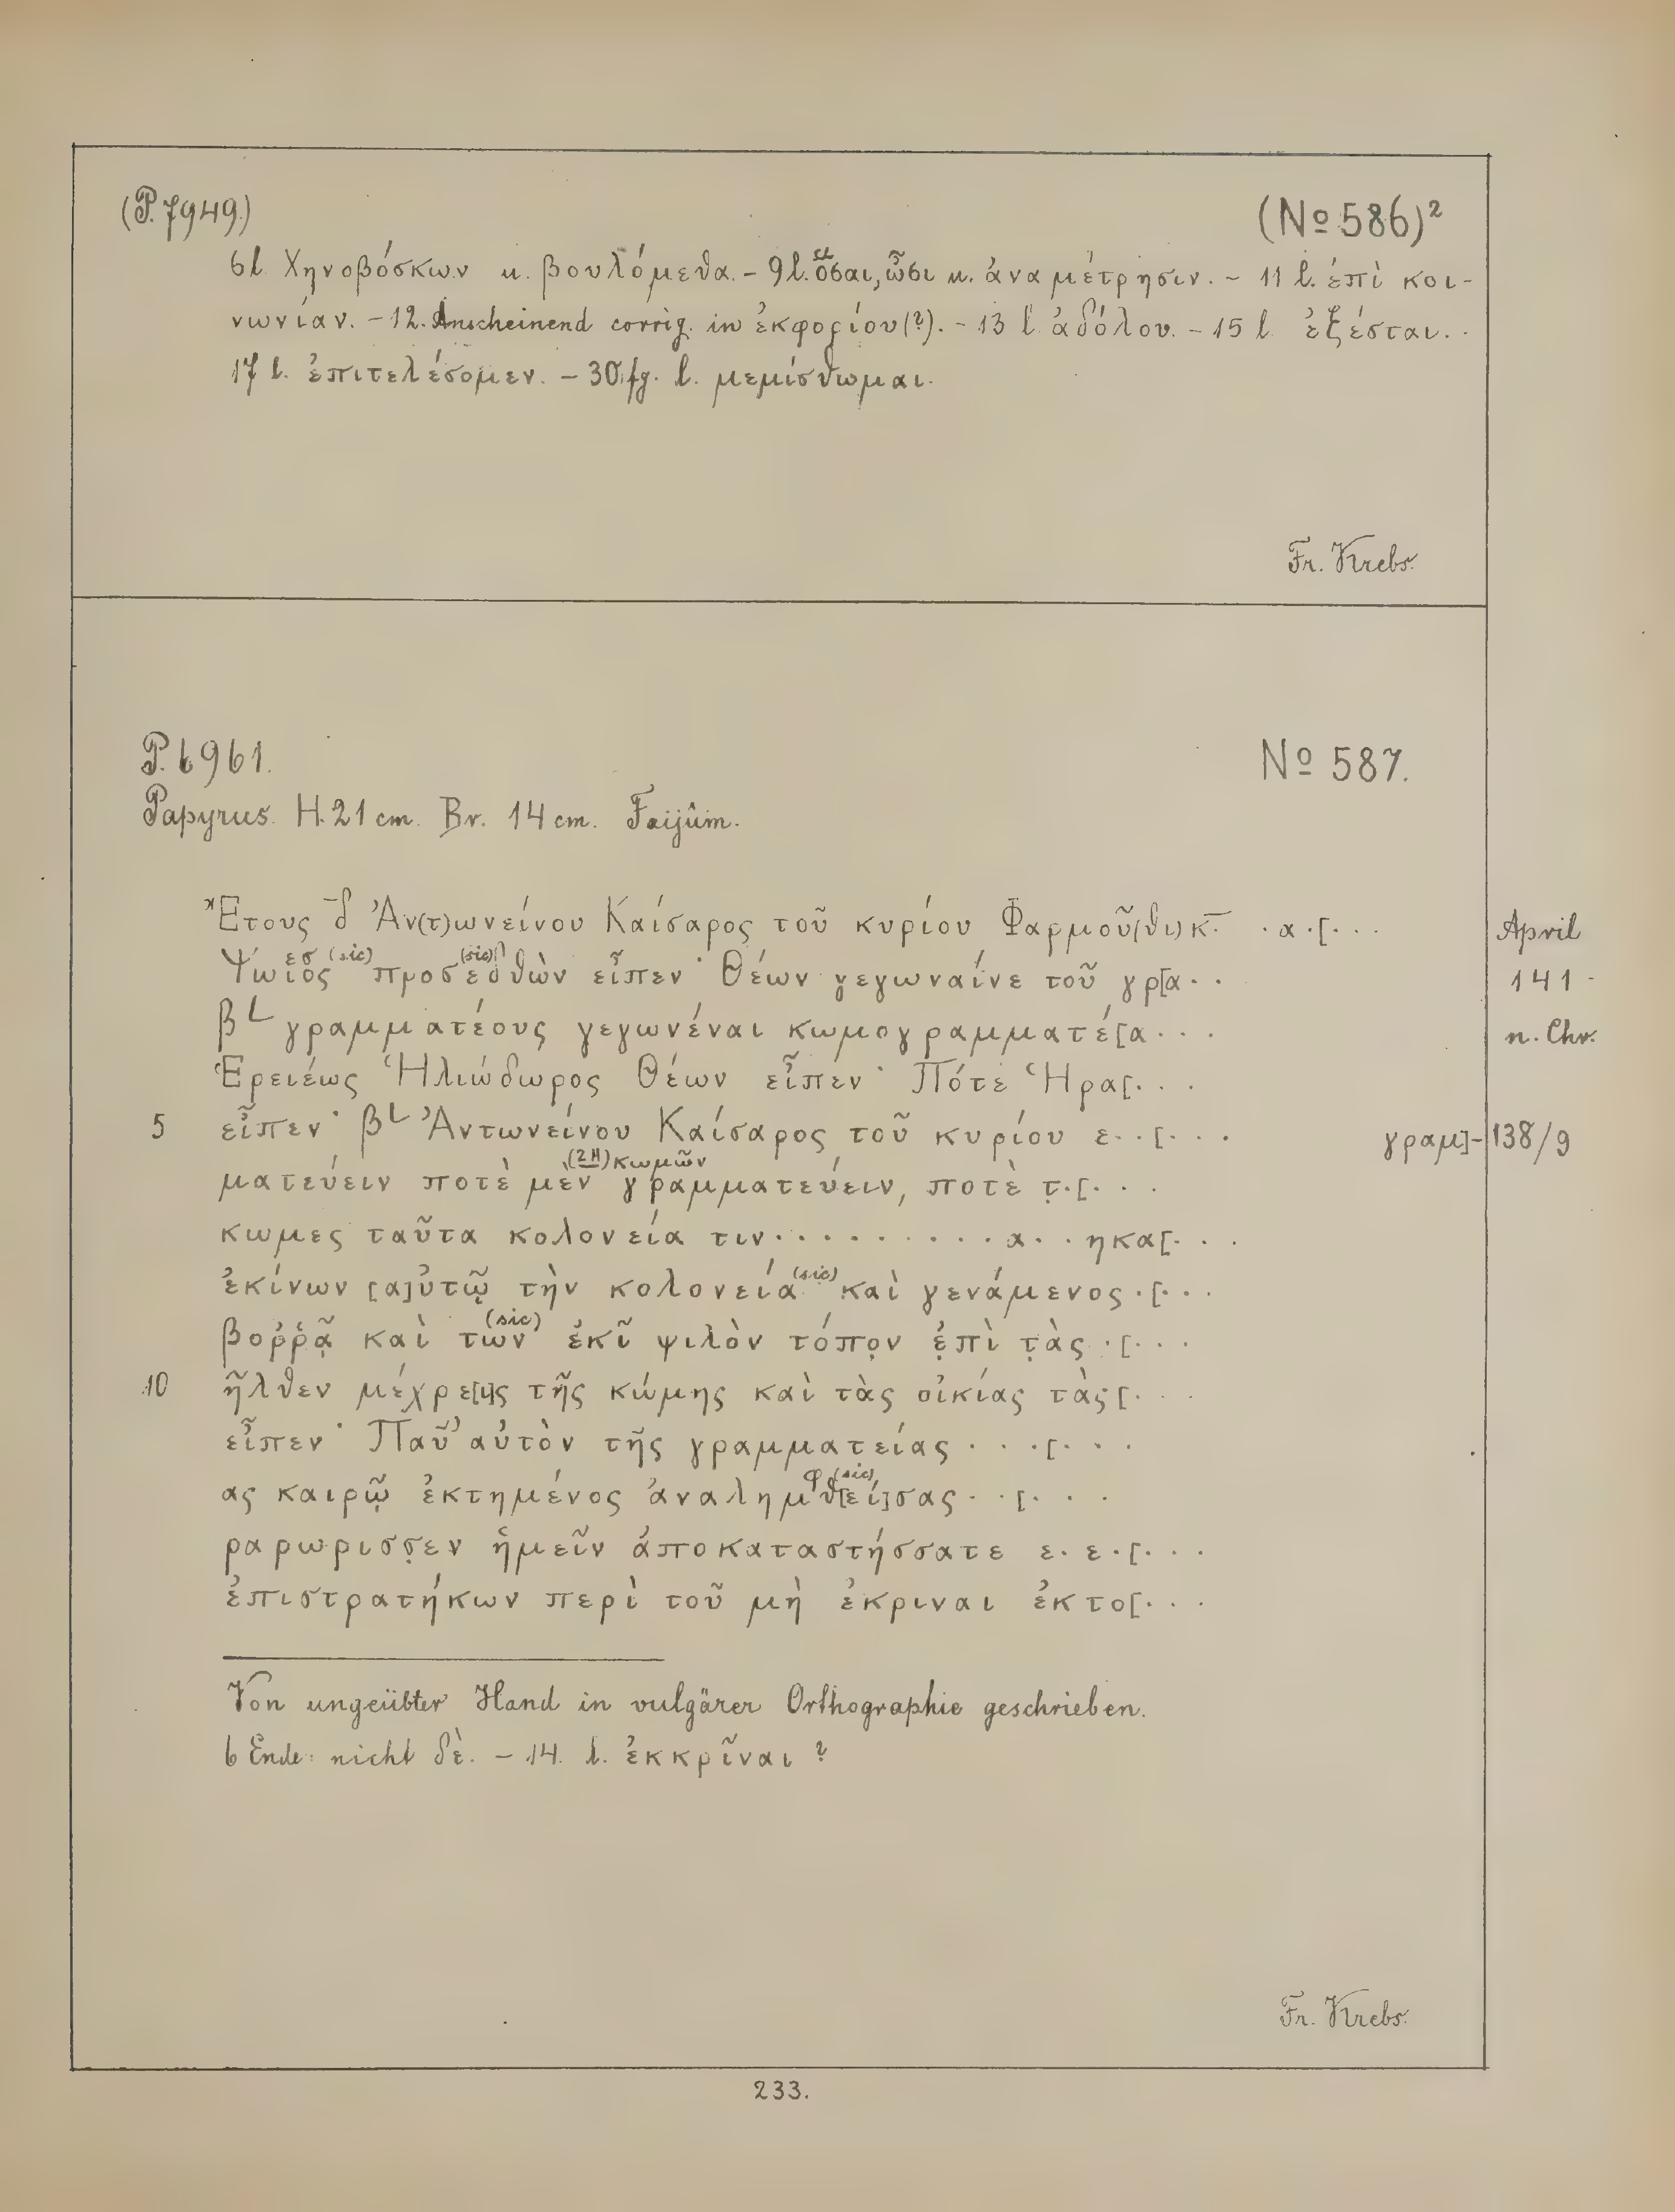 (P. 7949.)
(No 586)²
6 l. Χηνοβόσκων u. βουλόμεθα. – 9 l. ὅσαι, ὦσι u. ἀναμέτρησιν. – 11 l. ἐπὶ κοι-
νωνίαν. – 12. Anscheinend corrig. in ἐκφορίου(?). – 13 l. ἀδόλου. – 15 l. ἐξέσται. .
17 l. ἐπιτελέσομεν. – 30 fg. l. μεμίσθωμαι.
Fr. Krebs.
P. 6961.
No 587.
Papyrus. H. 21 cm. Br. 14 cm. Faijûm.
Ἔτους δ Ἀν(τ)ωνείνου Καίσαρος τοῦ κυρίου Φαρμοῦ(θι) κ . α . [. . .
April
Ψώϊος (sic) προσεδθὼν (sic) εἶπεν· Θέων γεγωναίνε τοῦ γρ[α . .
141
β L γραμματέους γεγωνέναι κωμογραμματέ[α . . .
n. Chr.
Ἑρειέως Ἡλιώδωρος Θέων εἶπεν· Πότε Ἡρα[. . .
5 εἶπεν· β L Ἀντωνείνου Καίσαρος τοῦ κυρίου ε . . [. . . γραμ]-
138/9
(2 H) κωμῶν
ματεύειν ποτὲ μὲν γραμματεύειν, ποτὲ τ̣ . [. . .
κωμες ταῦτα κολονεία τιν . . . . . . . . . . α . . ηκα[. . .
ἐκίνων [α]ὐτῷ τὴν κολονεία (sic) καὶ γενάμενος . [. . .
βοῤῥᾷ καὶ των (sic) ἐκῖ ψιλὸν τόπο̣ν ἐ̣πὶ τ̣ὰς . [. . .
10 ἦλθεν μέχρε[ι]ς τῆς κώμης καὶ τὰς οἰκίας τὰς [. . .
εἶπεν· Παῦ' αὐτὸν τῆς γραμματείας . . . [. . .
ας καιρῷ ἐκτημένος ἀναλημφθ[εί]σας (sic) . . [. . .
ραρωρισσ̣εν ἡμεῖν ἀποκαταστήσσατε ε . ε . [. . .
ἐπιστρατήκων περὶ τοῦ μὴ ἐκριναι ἐκτο[. . .
Von ungeübter Hand in vulgärer Orthographie geschrieben.
6 Ende: nicht δὲ. – 14. l. ἐκκρῖναι ?
Fr. Krebs.
233.